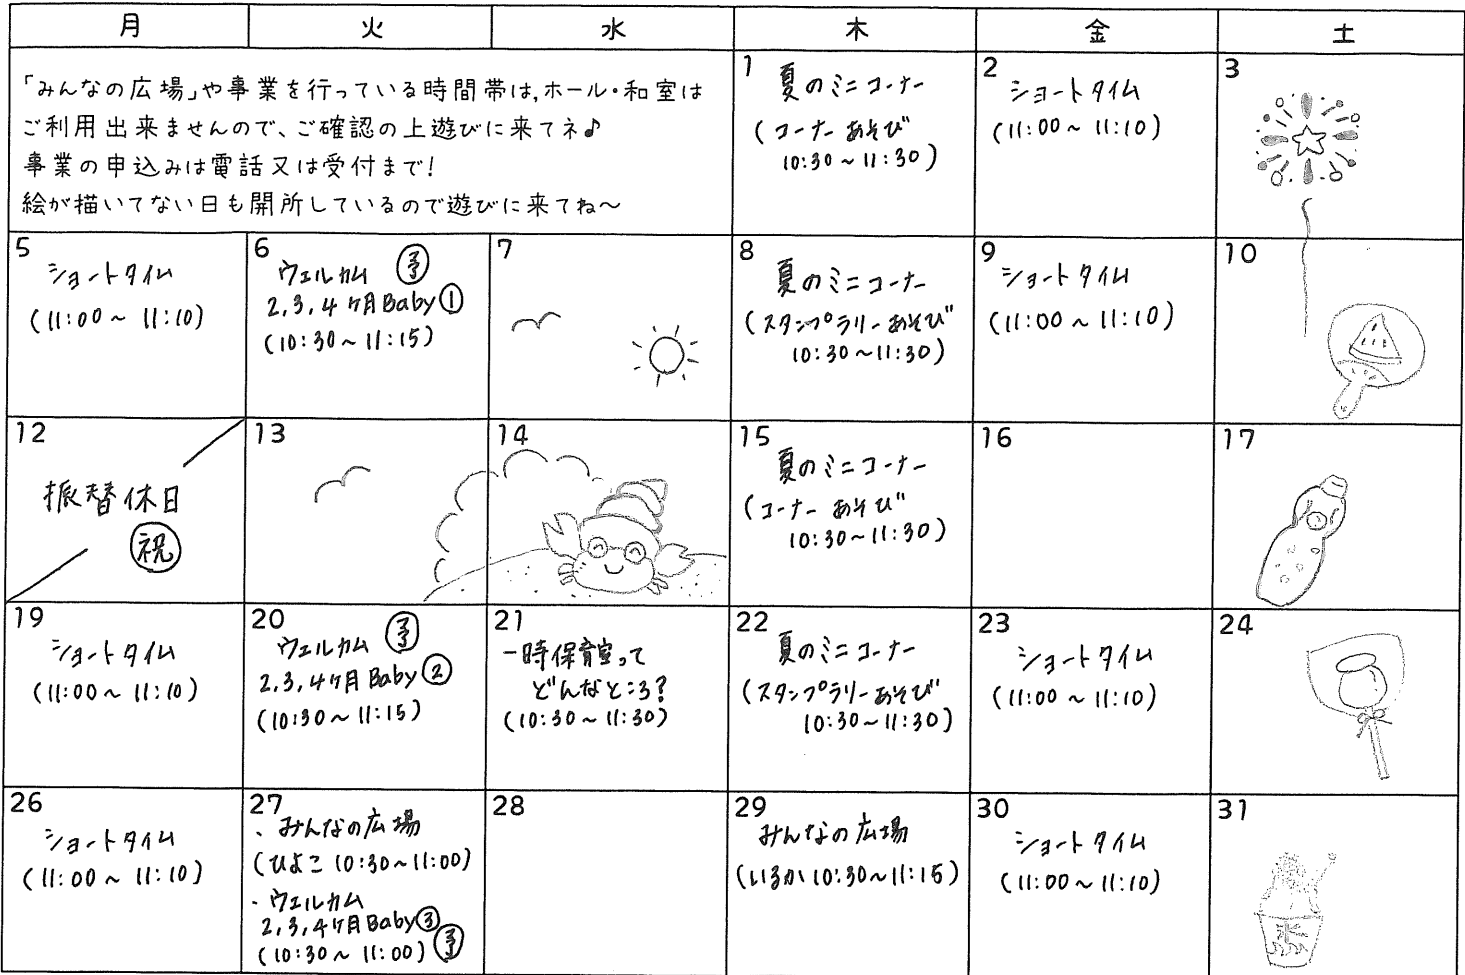 月 火 水 木 金 土
「みんなの広場」や事業を行っている時間帯は,ホール・和室は
ご利用出来ませんので、ご確認の上遊びに来てネ♪
事業の申込みは電話又は受付まで!
絵が描いてない日も開所しているので遊びに来てね〜
1
夏のミニコーナー
(コーナーあそび
10:30〜11:30)
2
ショートタイム
(11:00〜11:10)
3
5
ショートタイム
(11:00〜11:10)
6
ウェルカム 予
2,3,4ヶ月Baby①
(10:30〜11:15)
7
8
夏のミニコーナー
(スタンプラリーあそび
10:30〜11:30)
9
ショートタイム
(11:00〜11:10)
10
12
振替休日
祝
13
14
15
夏のミニコーナー
(コーナーあそび
10:30〜11:30)
16
17
19
ショートタイム
(11:00〜11:10)
20
ウェルカム 予
2,3,4ヶ月Baby②
(10:30〜11:15)
21
一時保育室って
どんなところ?
(10:30〜11:30)
22
夏のミニコーナー
(スタンプラリーあそび
10:30〜11:30)
23
ショートタイム
(11:00〜11:10)
24
26
ショートタイム
(11:00〜11:10)
27
・みんなの広場
(ひよこ 10:30〜11:00)
・ウェルカム
2,3,4ヶ月Baby③
(10:30〜11:00) 予
28
29
みんなの広場
(いるか 10:30〜11:15)
30
ショートタイム
(11:00〜11:10)
31
氷